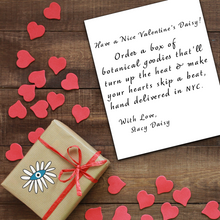 Have a Nice Valentine's Daisy!
Order a box of
botanical goodies that'll
turn up the heat & make
your hearts skip a beat,
hand delivered in NYC.
With Love,
Stacy Daisy